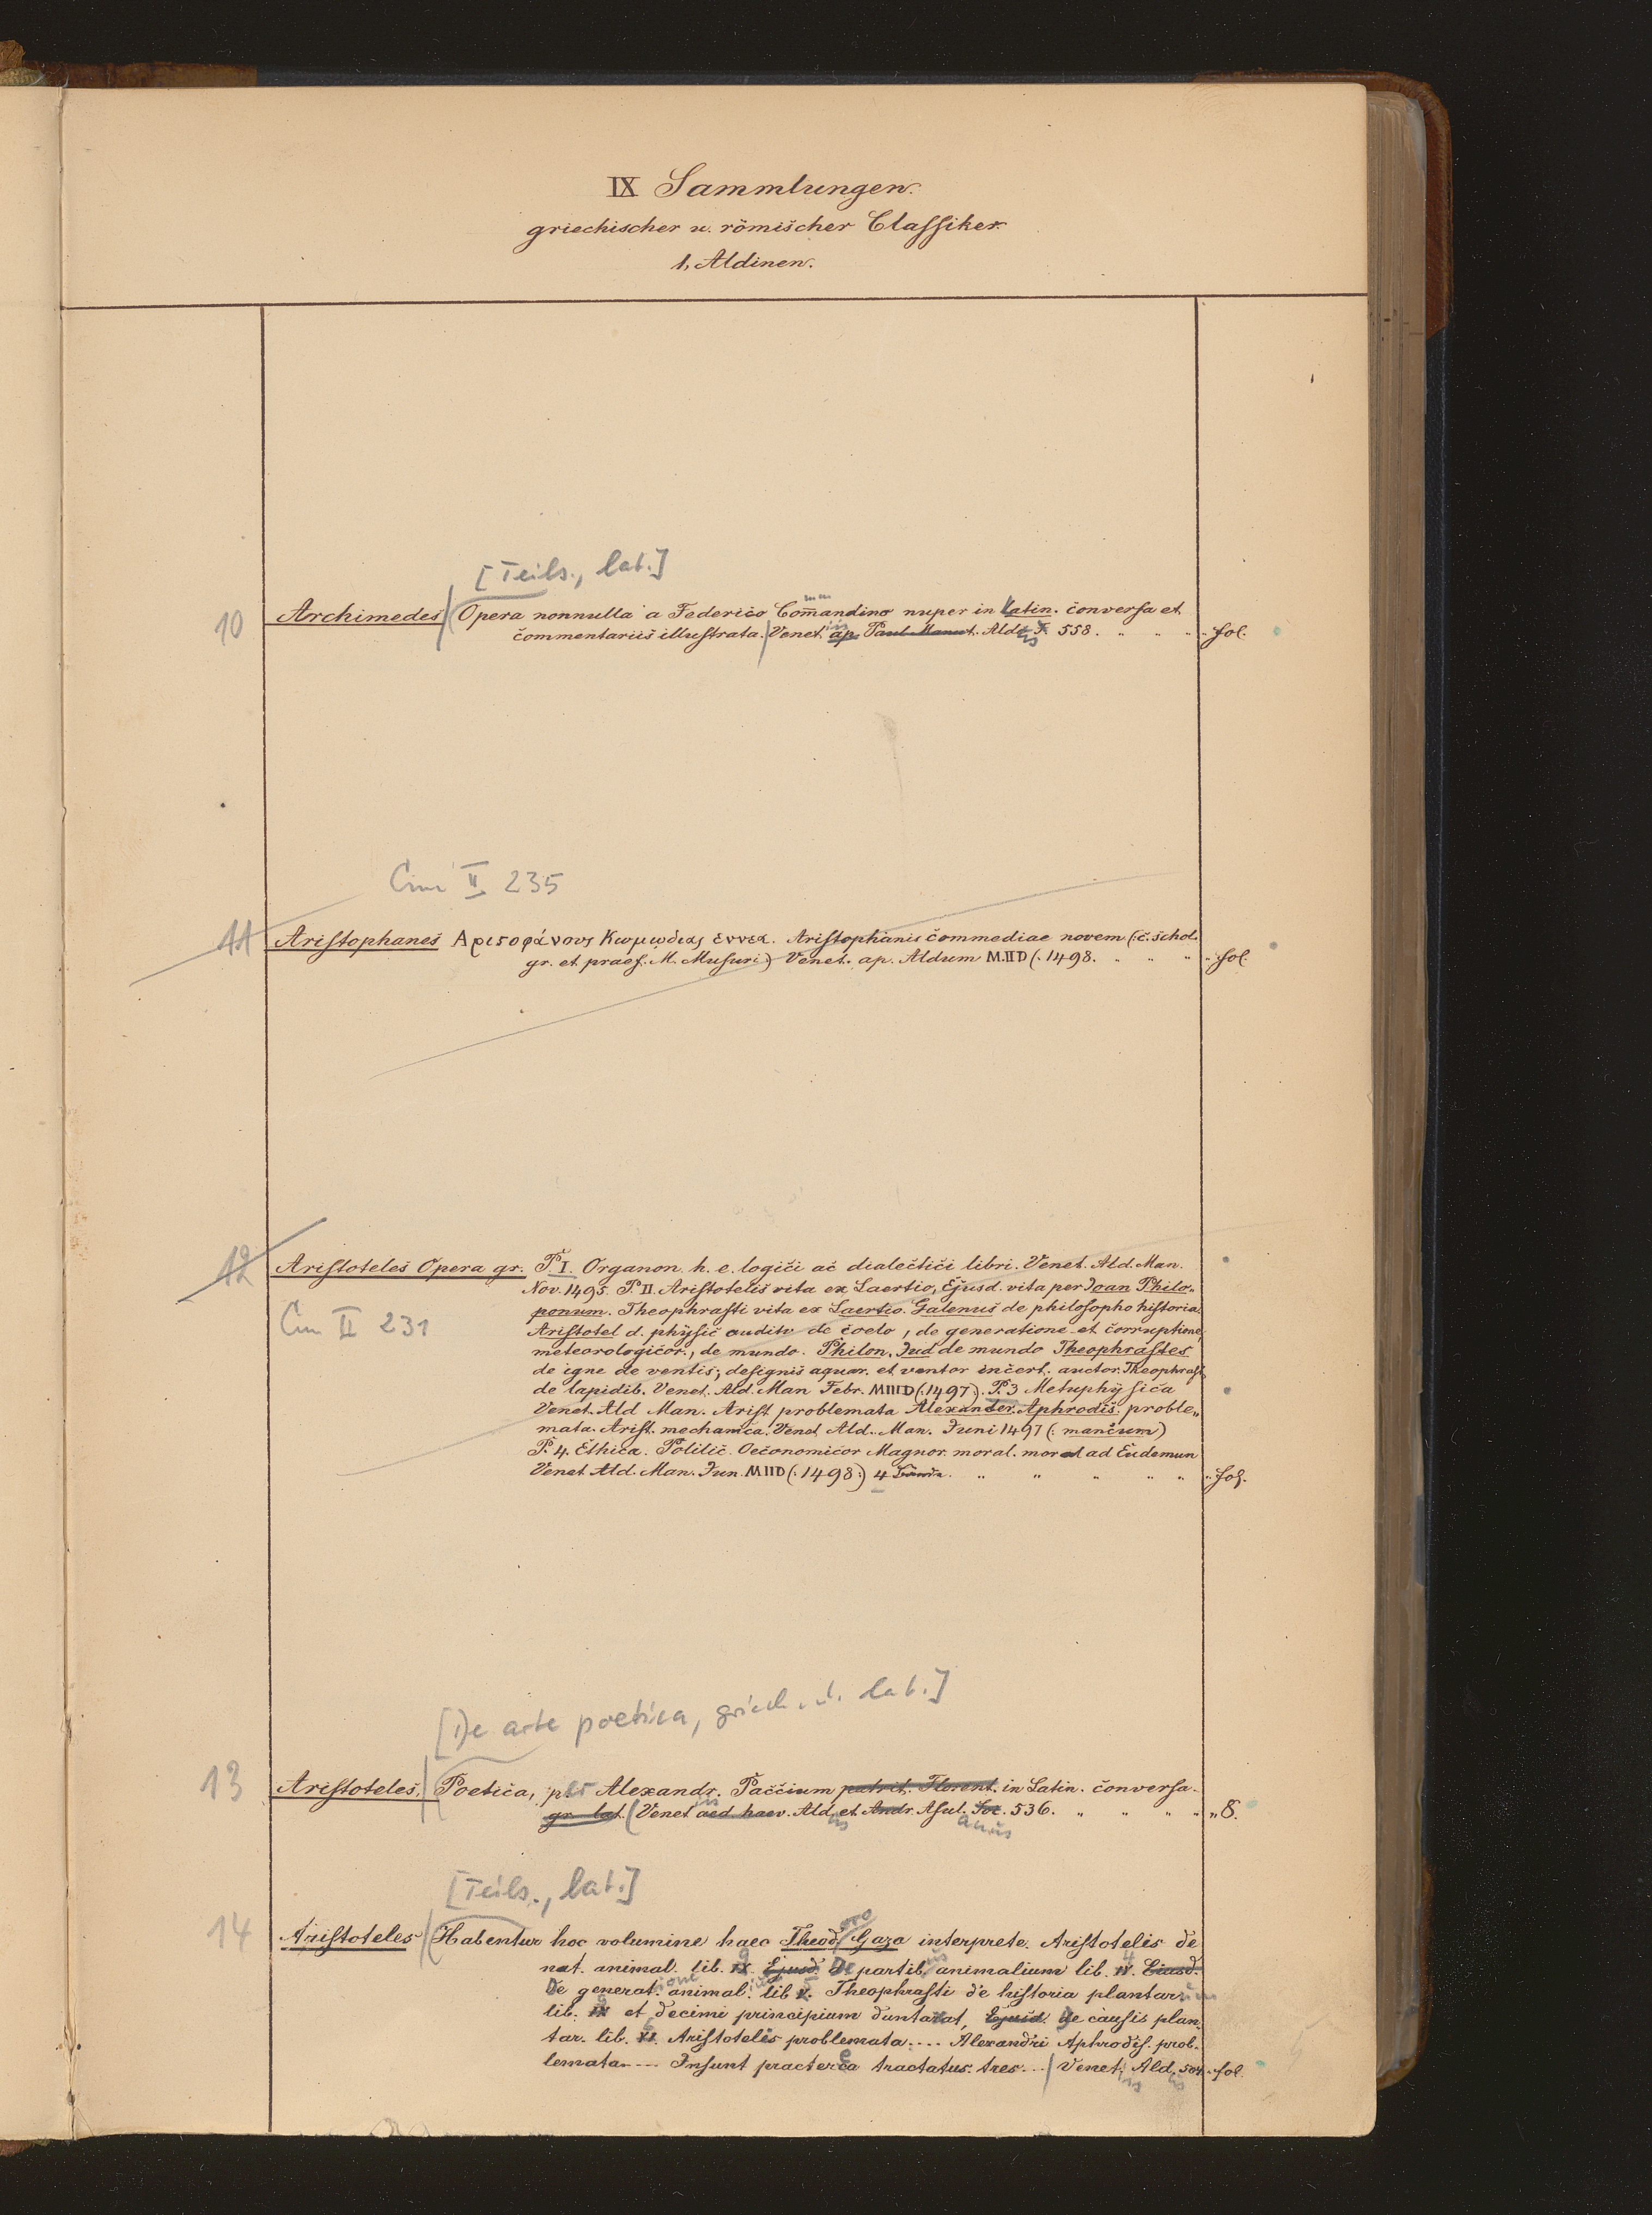 IX Sammlungen.
griechischer u. römischer Classiker
1, Aldinen.
[Teils., lat.]
10 Archimedes Opera nonnulla a Federico Com̄andino nuper in latin. conversa et
commentariis illustrata. Venet. ap. Paul Manut. Ald. F. 558. " " " " fol.
Cim II 235
11 Aristophanes Αριϛοφάνους Κωμῳδιας εννεα. Aristophanis commediae novem (: c. schol.
gr. et praef. M. Musuri) Venet. ap. Aldum M.IID (. 1498. " " " " fol.
12 Aristoteles Opera gr. P. I. Organon h. e. logici ac dialectici libri. Venet. Ald. Man.
Nov. 1495. P. II Aristotelis vita ex Laertio, Ejusd. vita per Joan Philo„
ponum. Theophrasti vita ex Laertio. Galenus de philosopho historia.
Cim II 231
Aristotel d. physic auditu de coelo, de generatione et corruptione,
meteorologicor., de mundo. Philon. Jud de mundo Theophrastes
de igne de ventis, designis aquar. et ventor incert. auctor. Theophrast
de lapidib. Venet. Ald. Man Febr. MIIID (:1497:). P. 3 Metaphysica
Venet. Ald Man. Arist problemata Alexander Aphrodis. proble„
mata. Arist. mechanica. Venet Ald. Man. Juni 1497 (: mancum)
P. 4. Ethica. Politic. Oeconomicor Magnor. moral. moral ad Eudemun
Venet Ald. Man. Jun. MIID (: 1498:) 4 Bände. " " " " " " fol.
[De arte poetica, griech. u. lat.]
13 Aristoteles. Poetica, per Alexandr. Paccium patrit. Florent. in Latin. conversa.
gr. lat. Venet in aed haer. Ald us et Andr. Asul anus Soc. 536. " " " " " 8.
[Teils., lat.]
14 Aristoteles Habentur hoc volumine haec Theod oro Gaza interprete. Aristotelis de
nat. animal. lib. IX 9. Ejusd. De partib us animalium lib. IV 4. Eiusd.
De generat ione animal. lib V 5. Theophrasti de historia plantar um
lib. IX 9 et decimi principium duntaxat, Ejusd. de causis plan.
tar. lib. VI 6. Aristotelis problemata.... Alexandri Aphrodis. prob.
lemata.... Insunt praeterea tractatus tres... Venet iis Ald us. 504. fol.